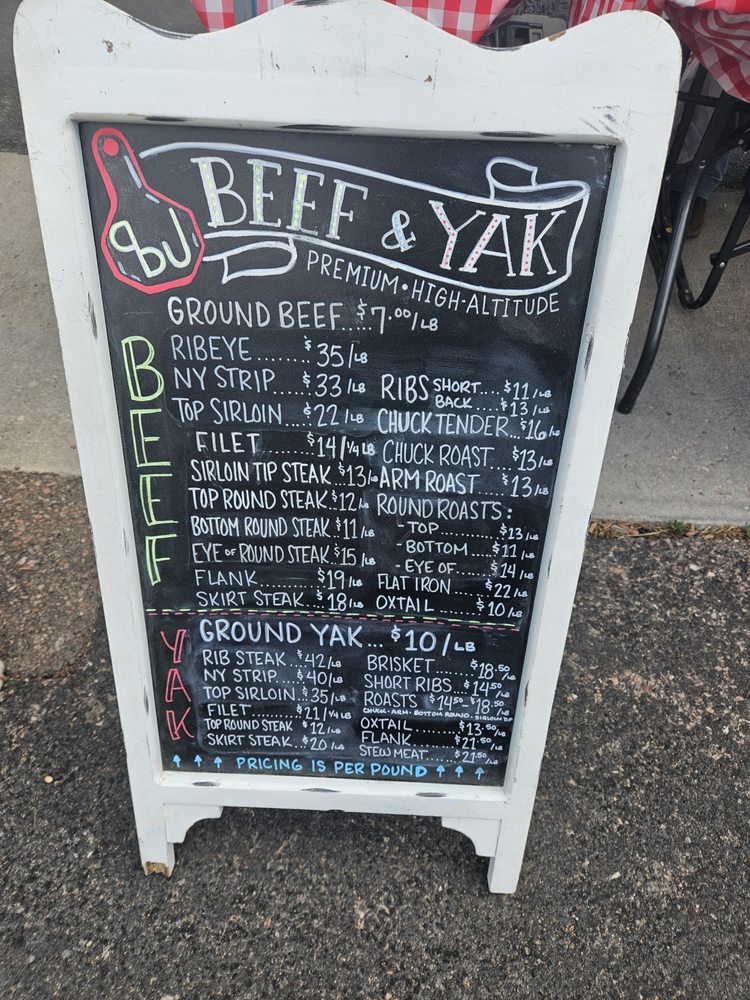 BEEF & YAK
PREMIUM • HIGH-ALTITUDE
GROUND BEEF..... $7.00/LB
BEEF
RIBEYE....... $35/LB
NY STRIP.... $33/LB
TOP SIRLOIN... $22/LB
FILET....... $14/1/4 LB
SIRLOIN TIP STEAK.$13/LB
TOP ROUND STEAK.$12/LB
BOTTOM ROUND STEAK.$11/LB
EYE OF ROUND STEAK.$15/LB
FLANK......... $19/LB
SKIRT STEAK...$18/LB
RIBS SHORT....$11/LB
BACK.....$13/LB
CHUCK TENDER...$16/LB
CHUCK ROAST...$13/LB
ARM ROAST....$13/LB
ROUND ROASTS:
-TOP..........$13/LB
-BOTTOM....$11/LB
-EYE OF......$14/LB
FLAT IRON.......$22/LB
OXTAIL.........$10/LB
YAK
GROUND YAK... $10/LB
RIB STEAK...$42/LB
NY STRIP....$40/LB
TOP SIRLOIN..$35/LB
FILET.........$21/1/4 LB
TOP ROUND STEAK $12/LB
SKIRT STEAK...$20/LB
BRISKET......$18.50/LB
SHORT RIBS...$14.50/LB
ROASTS $14.50-$18.50/LB
CHUCK • ARM • BOTTOM ROUND • SIRLOIN TIP
OXTAIL.......$13.50/LB
FLANK........$21.50/LB
STEW MEAT.....$21.50/LB
↑ ↑ ↑ PRICING IS PER POUND ↑ ↑ ↑ ↑